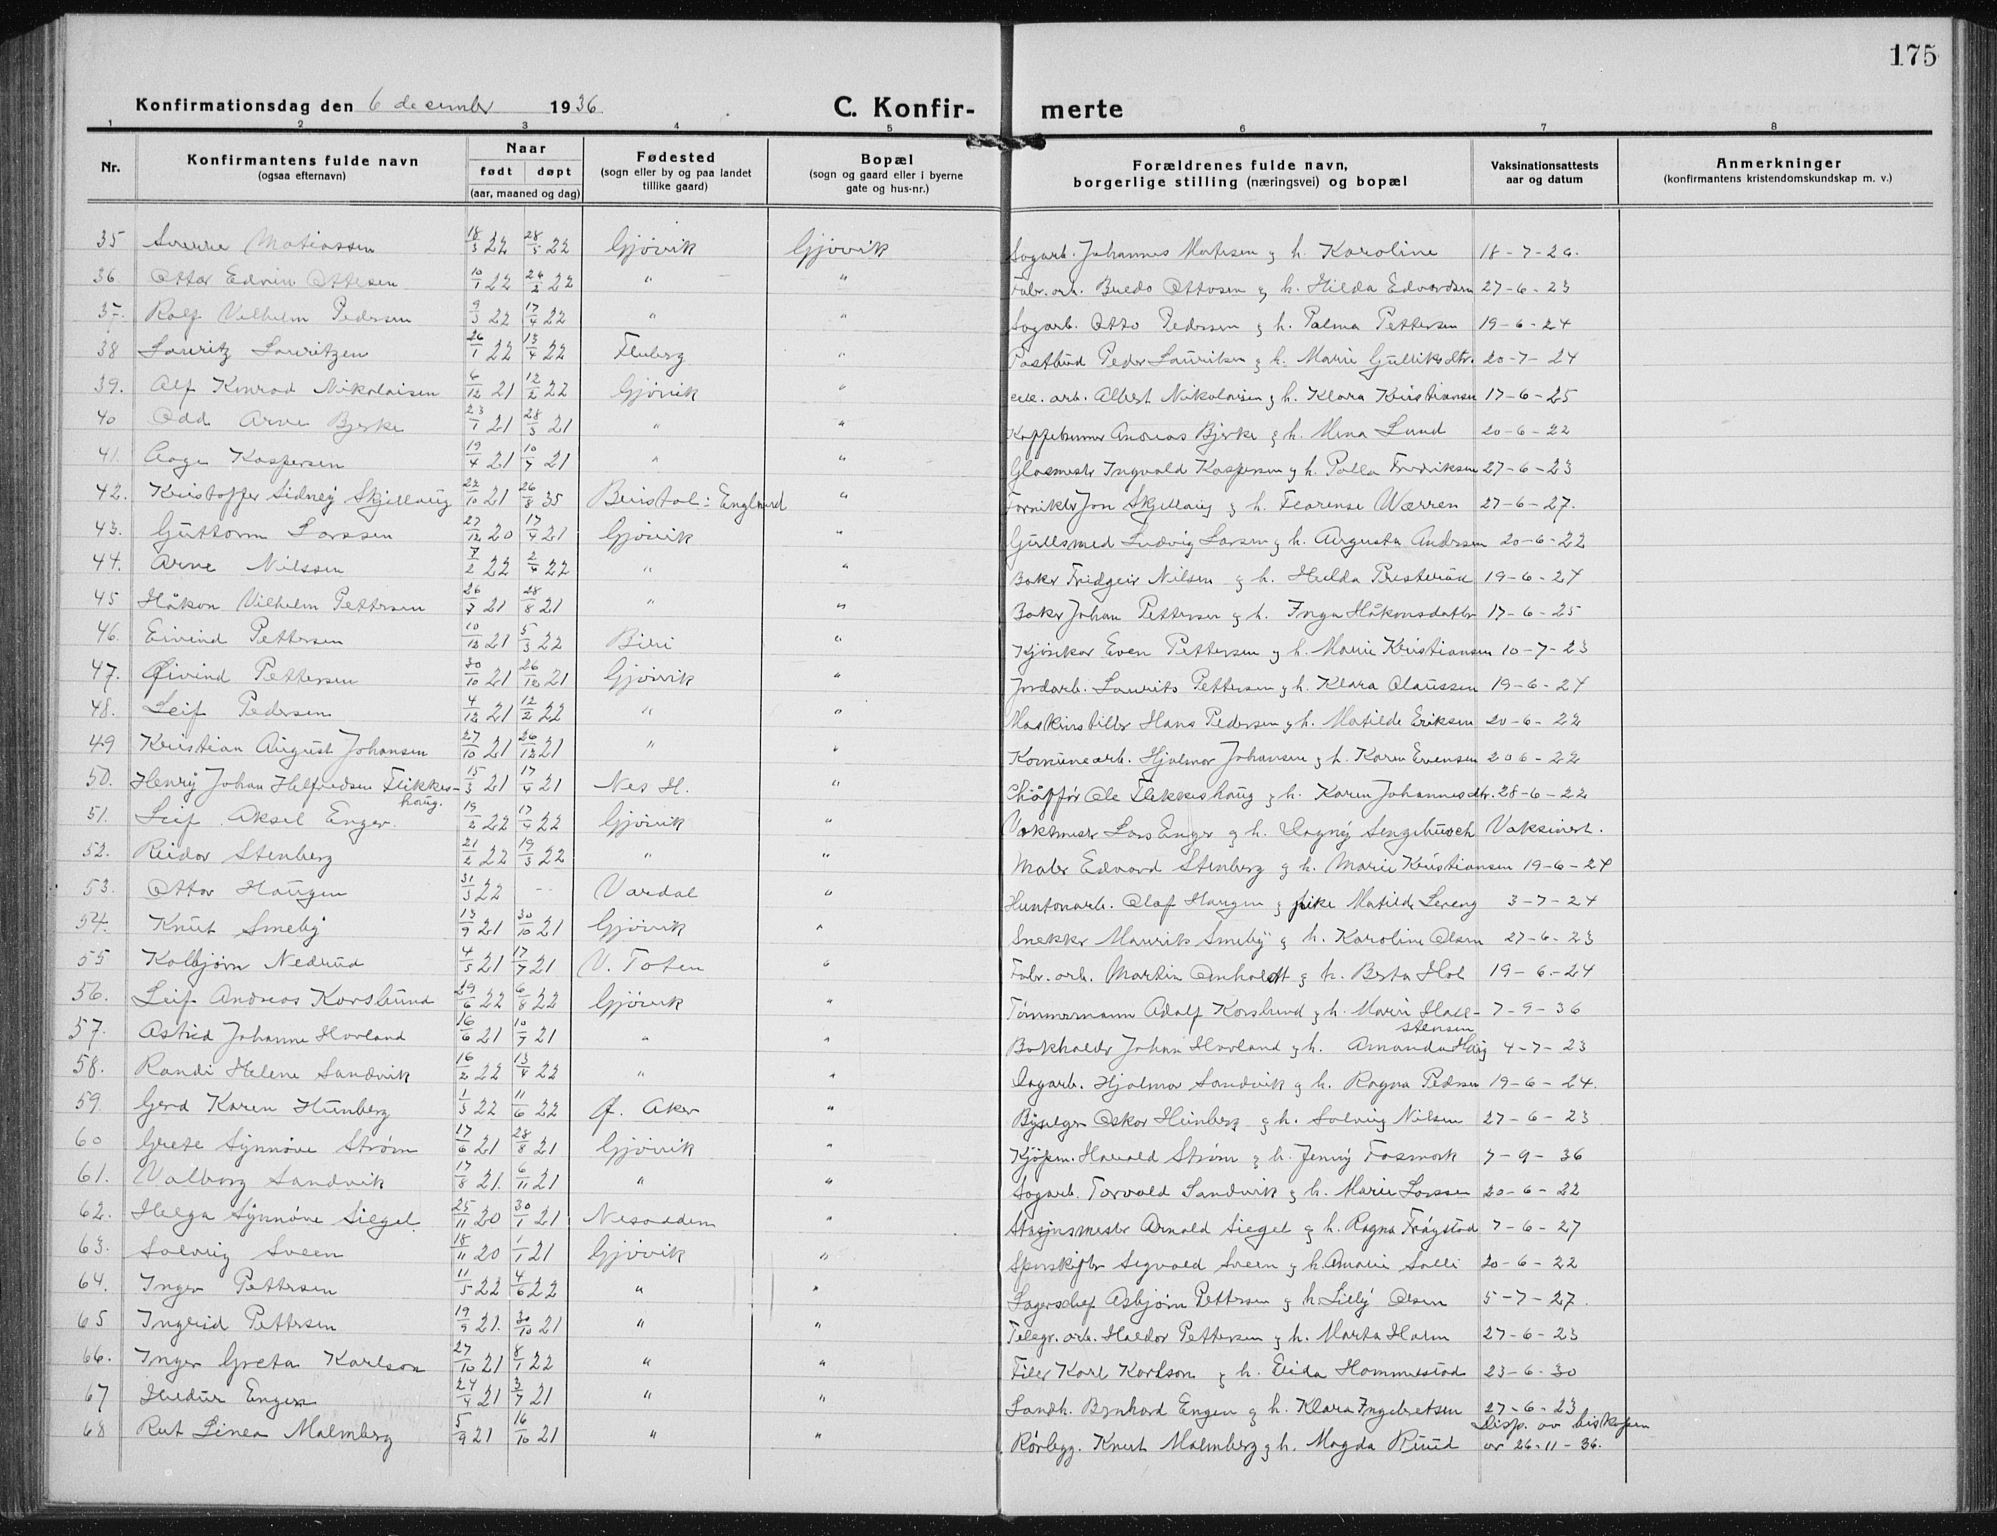 175
Konfirmationsdag den 6 desember 1936 C. Konfir- merte
1 2 3 4 5 6 7 8
Nr. Konfirmantens fulde navn (ogsaa efternavn) Naar født døpt (aar, maaned og dag) Fødested (sogn eller by og paa landet tillike gaard) Bopæl (sogn og gaard eller i byerne gate og hus-nr.) Forældrenes fulde navn, borgerlige stilling (næringsvei) og bopæl Vaksinationsattests aar og datum Anmerkninger (konfirmantens kristendomskundskap m. v.)
35 Sverre Matiassen 18/3 22 28/5 22 Gjøvik Gjøvik Sagarb. Johannes Matisen g h. Karoline 18-7-26.
36 Ottar Edvin Ottesen 10/1 22 26/2 22 " " Fabr. arb. Bredo Ottosen g h. Hilda Edvardsen 27-6-23
37. Rolf Vilhelm Pedersen 9/3 22 17/4 22 " " Sogarb. Otto Pedersen g h. Palma Pettersen 19-6-24
38 Lauritz Lauritzen 26/1 22 13/4 22 Fluberg " Postbud Peder Lauritsen g h. Marie Gulliksdtr. 20-7-24
39. Alf Konrad Nikolaisen 6/12 21 12/2 22 Gjøvik " arb. Albert Nikolaisen g h. Klara Kristiansen 17-6-25
40 Odd Arve Bjerke 23/1 21 28/3 21 " " Kaffebrenner Andreas Bjerke g h. Mina Lund 20-6-22
41. Aage Kaspersen 19/4 21 10/7 21 " " Glasmestr Ingvald Kaspersen g h. Palla Fredriksen 27-6-23
42. Kristoffer Sidney Skjellaug 22/10 21 26/8 35 Bristol: England " Fornikler Jon Skjellaug g h. Florense Warren 27-6-27.
43. Guttorm Larssen 27/12 20 17/4 21 Gjøvik " Gullsmed Ludvig Larsen g h. Augusta Andersen 20-6-22
44. Arne Nilssen 7/2 22 2/4 22 " " Baker Fridgeir Nilsen g h. Hulda 19-6-24
45 Håkon Vilhelm Pettersen 26/7 21 28/8 21 " " Baker Johan Pettersen g h. Inga Håkonsdatter 17-6-25
46. Eivind Pettersen 10/12 21 5/3 22 Biri " Kjørekar Even Pettersen g h. Marie Kristiansen 10-7-23
47. Øivind Pettersen 30/10 21 26/12 21 Gjøvik " Jordarb. Laurits Pettersen g h. Klara Claussen 19-6-24
48. Leif Pedersen 4/12 21 12/2 22 " " Maskinstiller Hans Pedersen g h. Matilde Eriksen 20-6-22
49 Kristian August Johansen 27/10 21 26/12 21 " " Komunearb. Hjalmar Johansen g h. Karen Evensen 20 6-22
50. Henry Johan Helfredsen Flikkes-haug. 15/3 21 17/4 21 Nes H. " Chåffør Ole Flekkeshaug g h. Karen Johannesdtr. 28-6-22
51. Leif Aksel Enger. 19/2 22 17/4 22 Gjøvik " Vaktmester Lars Enger g h. Dagny Sengebusch Vaksinert.
52. Reidar Stenberg 21/2 22 19/3 22 " " Maler Edvard Stenberg g h. Marie Kristiansen 19-6-24
53. Ottar Haugen 31/3 22 -- Vardal " Huntonarb. Olaf Haugen g pike Matilde Lereng 3-7-24
54. Knut Smeby 13/9 21 30/10 21 Gjøvik " Snekker Mauritz Smeby g h. Karoline Olsen 27-6-23
55 Kolbjørn Nedrud 4/5 21 17/7 21 V. Toten " Fabr. arb. Martin Amholdt g h. Berta Hol 19-6-24
56. Leif Andreas Korslund 29/6 22 6/8 22 Gjøvik " Tømmermann Adolf Korslund g h. Marie Hall-stensen 7-9-36
57. Astrid Johanne Hovland 16/6 21 10/7 21 " " Bokholder Johan Hovland g h. Amanda Haug 4-7-23
58. Randi Helene Sandvik 16/2 22 13/4 22 " " Dagarb. Hjalmar Sandvik g h. Ragna Pedersen 19-6-24.
59. Gerd Karen Hunberg 1/3 22 11/6 22 Ø. Aker " Byselger Oskar Heinberg g h. Solveig Nilsen 27-6-23
60 Grete Synnøve Strøm 17/6 21 28/8 21 Gjøvik " Kjøpm. Harald Strøm g h. Jenny Fosmark 7-9-36
61. Valborg Sandvik 17/8 21. 6/11 21 " " Sogarb. Torvald Sandvik g h. Marie Larssen 20-6-22
62. Helga Synnøve Siegel. 25/11 20 30/1 21 Nesodden " Stasjonsmester Arnold Siegel g h. Ragna Frøystad 7-6-27
63. Solveig Sveen 18/11 20 1/1 21 Gjøvik " Sporskifter Sigvald Sveen g h. Amalie Solli 20-6-22
64. Inger Pettersen 11/5 22 4/6 22 " " Lagerschef Asbjørn Pettersen g h. Lilly Olsen 5-7-27.
65 Ingrid Pettersen 19/9 21. 30/10 21 " " Telegr. arb. Haldor Pettersen g h. Marta Holm 27-6-23
66. Inger Greta Karlson 27/10 21 8/1 22 " " Filer Karl Karlson g h. Elida Hammerstad 23-6-30
67 Hildur Engen 24/4 21 3/7 21 " " Landh. Bernhard Engen g h. Klara Ingebretsen 27-6-23
68 Rut Linea Malmberg 5/9 21 16/10 21 " " Rørlegg. Knut Malmberg g h. Magda Ruud Disp. av biskopen av 26-11-36.